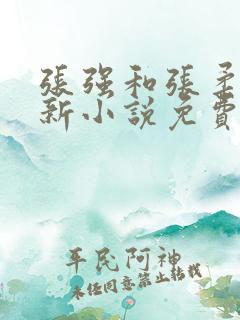 張强和張柔
新小說免費
平民阿神
未經同意禁止轉載